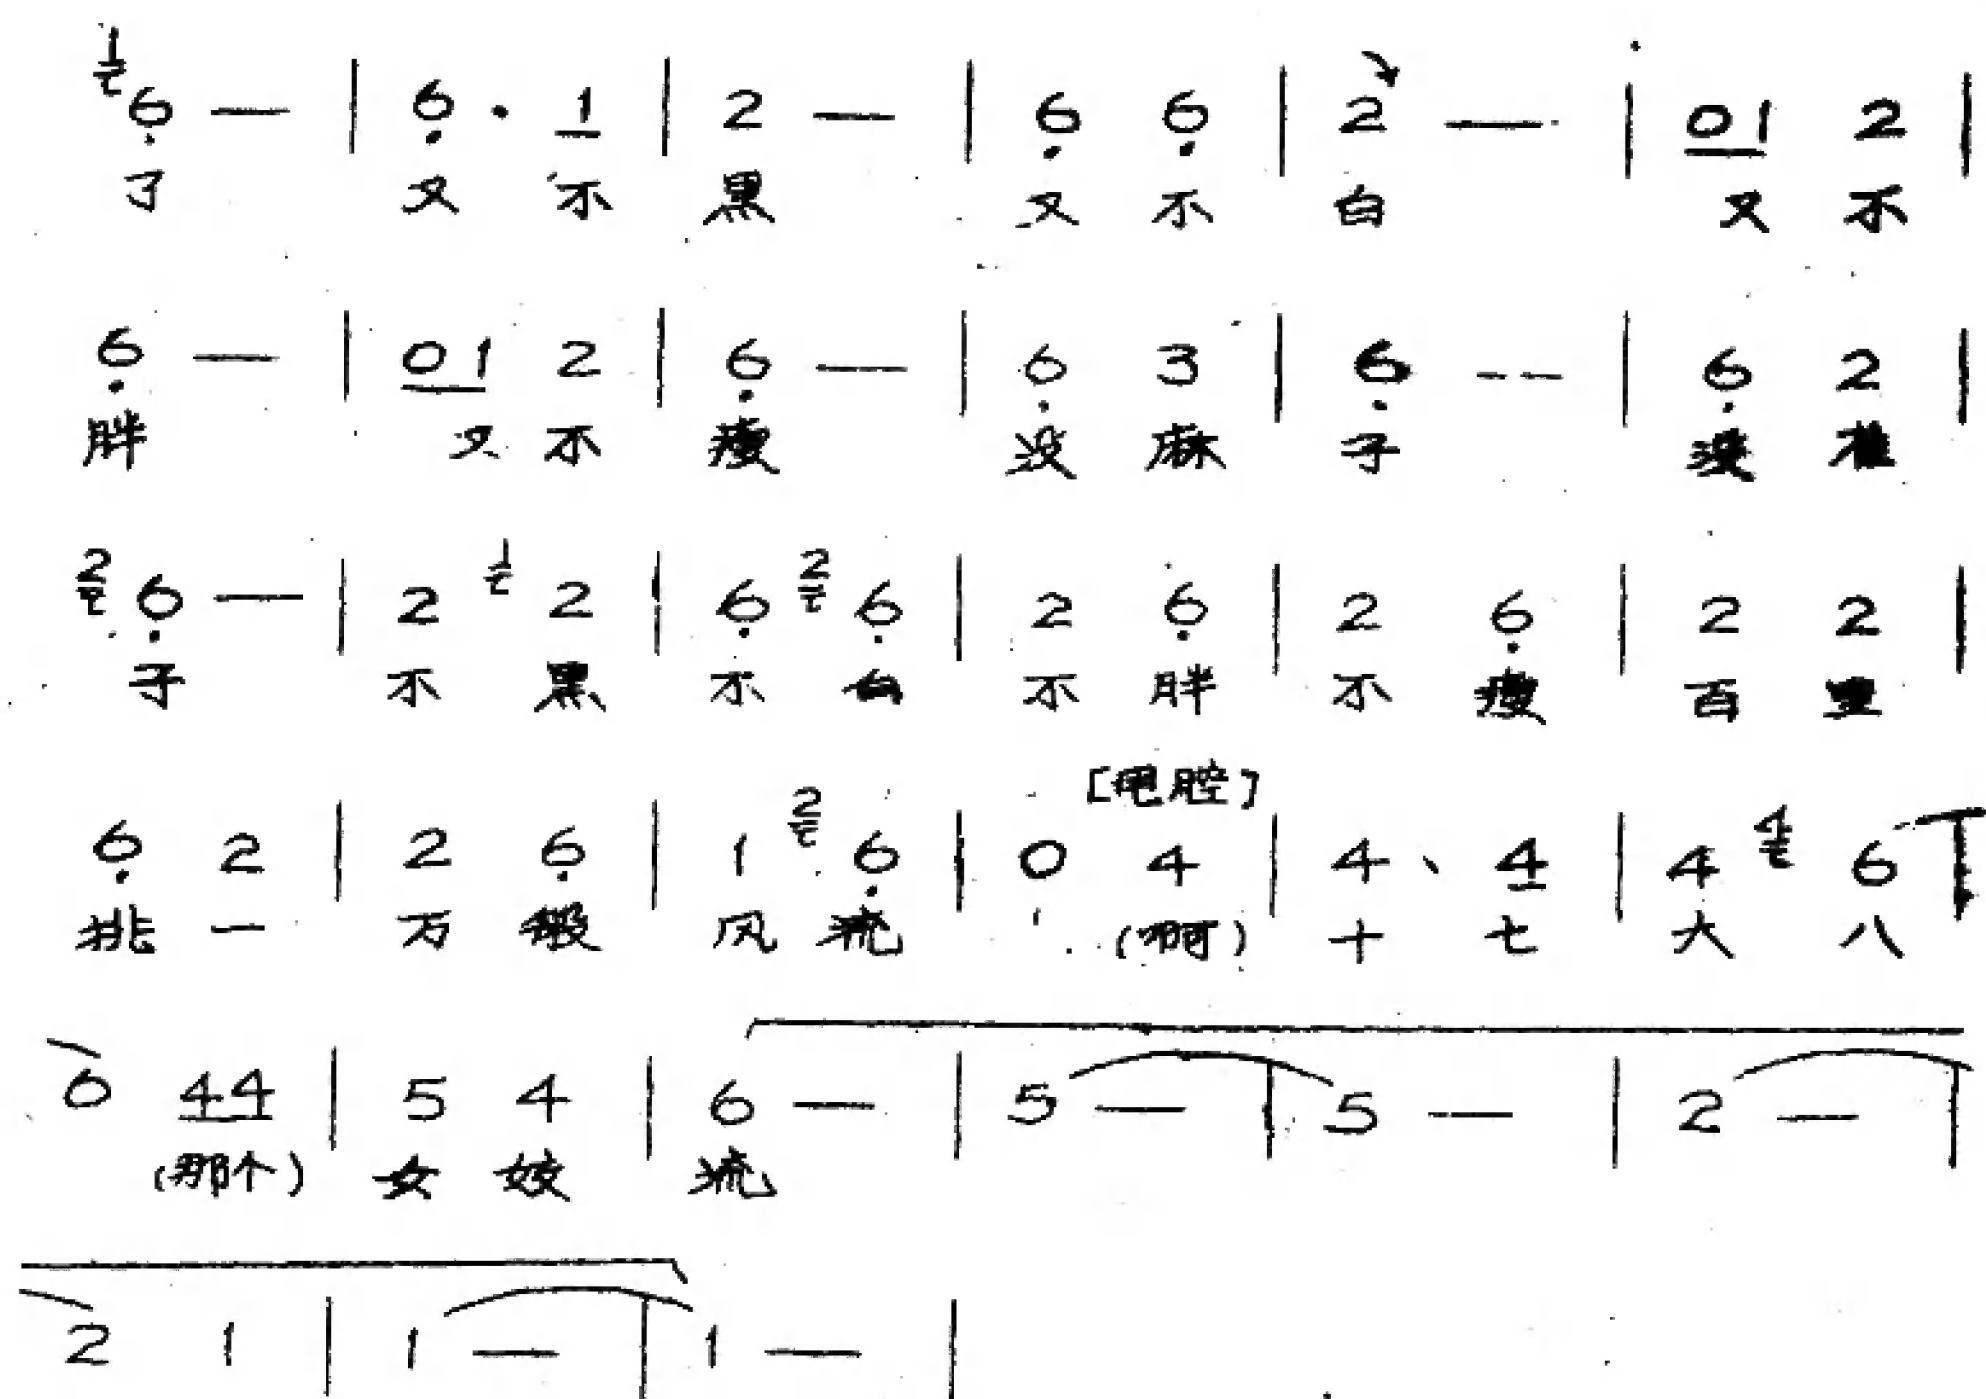 1 6 — | 6 · 1 | 2 — | 6 6 | 2 — | 01 2 |
了 又 不 黑 又 不 白 又 不
6 — | 01 2 | 6 — | 6 3 | 6 -- | 6 2 |
胖 又 不 瘦 没 麻 子 没
2 6 — | 2 1 2 | 6 2 6 | 2 6 | 2 6 | 2 2 |
子 不 黑 不 白 不 胖 不 瘦 百 里
[甩腔]
6 2 | 2 6 | 1 2 6 | 0 4 | 4、4 | 4 4 6 |
挑 一 万 风 流 (啊) 十 七 大 八
6 44 | 5 4 | 6 — | 5 — | 5 — | 2 — |
(那个) 女 流
2 1 | 1 — | 1 — |